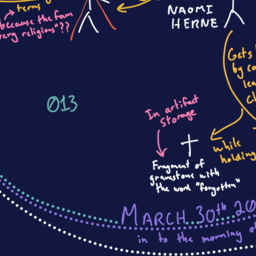 terms
because the fam
very religious"??
NAOMI
HERNE
Gets
by co
lea
cl
013
In artifact
storage
while
holding
Fragment of
gravestone with
the word "forgotten"
MARCH 30th 20
in to the morning of